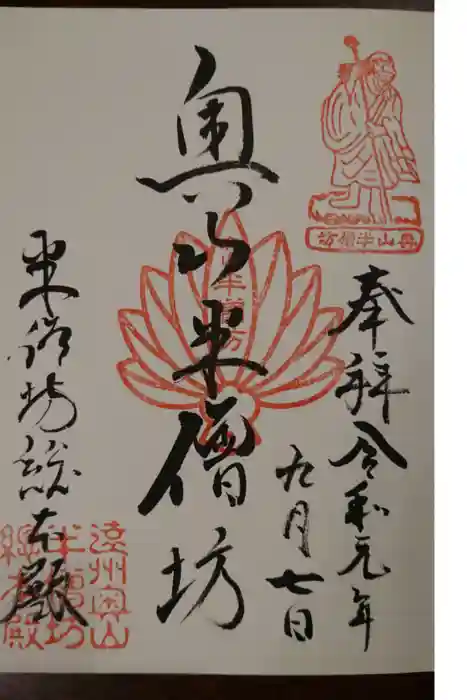 奉拝 令和元年
九月七日
奥山半僧坊
半僧坊総本殿
奥山半僧坊
遠州奥山
半僧坊
総本殿